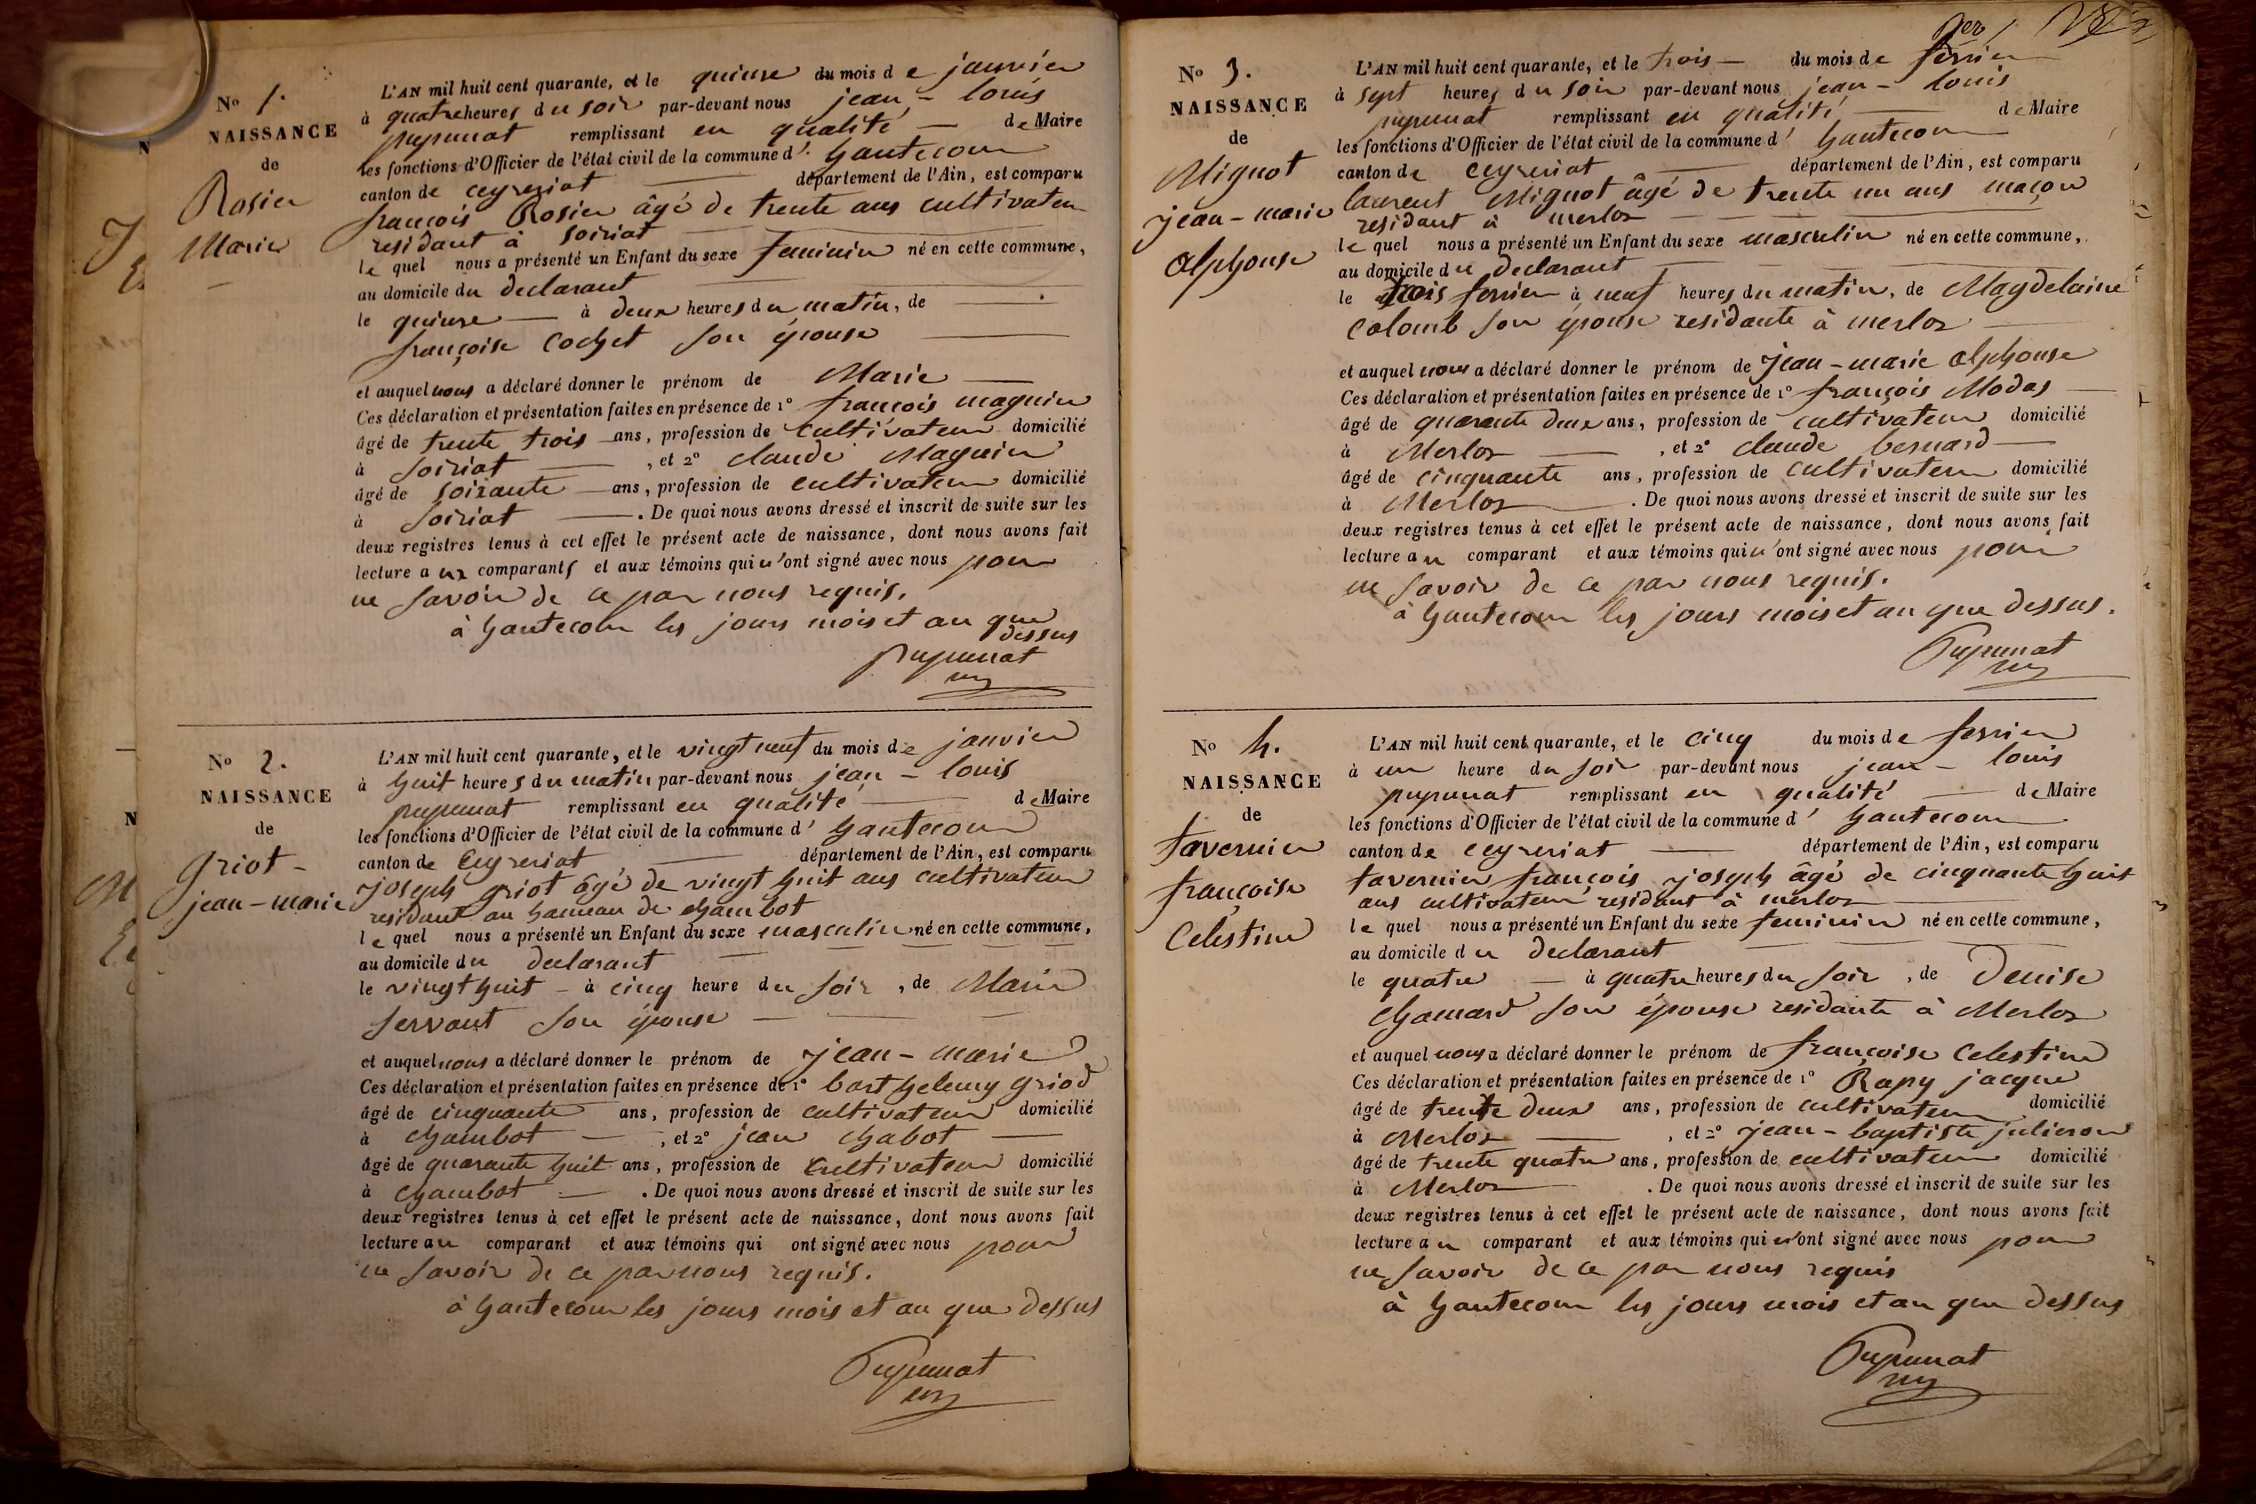 No 1.
NAISSANCE
de
Rosier
Marie
L'AN mil huit cent quarante, et le quinse du mois de janvier
à quatre heures du soir par-devant nous jean - louis
pupunat remplissant en qualité de Maire
les fonctions d'Officier de l'état civil de la commune d' hautecour
canton de ceyzeriat département de l'Ain, est comparu
françois Rosier âgé de trente ans cultivateur
residant à soiriat
le quel nous a présenté un Enfant du sexe feminin né en cette commune,
au domicile du declarant
le quinse à deux heures du matin, de
françoise Cochet son épouse
et auquel nous a déclaré donner le prénom de Marie
Ces déclaration et présentation faites en présence de 1° françois maguin
âgé de trente trois ans, profession de cultivateur domicilié
à soiriat , et 2° claude Maguin
âgé de soixante ans, profession de cultivateur domicilié
à soiriat . De quoi nous avons dressé et inscrit de suite sur les
deux registres tenus à cet effet le présent acte de naissance, dont nous avons fait
lecture aux comparants et aux témoins qui n'ont signé avec nous pour
ne savoir de ce par nous requis.
à hautecour les jours mois et an que
dessus
pupunat
No 2.
NAISSANCE
de
griot -
jean - marie
L'AN mil huit cent quarante, et le vingt neuf du mois de janvier
à huit heures du matin par-devant nous jean - louis
pupunat remplissant en qualité de Maire
les fonctions d'Officier de l'état civil de la commune d' hautecour
canton de Ceyzeriat département de l'Ain, est comparu
joseph griot âgé de vingt huit ans cultivateur
residant au hameau de chambot
le quel nous a présenté un Enfant du sexe masculin né en cette commune,
au domicile du declarant
le vingt huit - à cinq heure du soir, de Marie
servant son épouse
et auquel nous a déclaré donner le prénom de jean - marie
Ces déclaration et présentation faites en présence de 1° barthelemy griod
âgé de cinquante ans, profession de cultivateur domicilié
à chambot , et 2° jean chabot
âgé de quarante huit ans, profession de cultivateur domicilié
à chambot . De quoi nous avons dressé et inscrit de suite sur les
deux registres tenus à cet effet le présent acte de naissance, dont nous avons fait
lecture au comparant et aux témoins qui ont signé avec nous pour
ne savoir de ce par nous requis.
à hautecour les jours mois et an que dessus
Pupunat
No 3.
NAISSANCE
de
Mignot
jean - marie
alphonse
L'AN mil huit cent quarante, et le trois du mois de fevrier
à sept heures du soir par-devant nous jean - louis
pupunat remplissant en qualité de Maire
les fonctions d'Officier de l'état civil de la commune d' hautecour
canton de ceyzeriat département de l'Ain, est comparu
laurent Mignot âgé de trente un ans maçon
residant à merloz
le quel nous a présenté un Enfant du sexe masculin né en cette commune,
au domicile du declarant
le trois fevrier à neuf heures du matin, de Magdelaine
Colomb son épouse residante à merloz
et auquel nous a déclaré donner le prénom de jean - marie alphonse
Ces déclaration et présentation faites en présence de 1° françois Modas
âgé de quarante deux ans, profession de cultivateur domicilié
à Merloz , et 2° claude bernard
âgé de cinquante ans, profession de cultivateur domicilié
à Merloz . De quoi nous avons dressé et inscrit de suite sur les
deux registres tenus à cet effet le présent acte de naissance, dont nous avons fait
lecture au comparant et aux témoins qui n'ont signé avec nous pour
ne savoir de ce par nous requis.
à hautecour les jours mois et an que dessus.
Pupunat
No 4.
NAISSANCE
de
tavernier
françoise
Celestine
L'AN mil huit cent quarante, et le cinq du mois de fevrier
à un heure du soir par-devant nous jean - louis
pupunat remplissant en qualité de Maire
les fonctions d'Officier de l'état civil de la commune d' hautecour
canton de ceyzeriat département de l'Ain, est comparu
tavernier françois joseph âgé de cinquante huit
ans cultivateur residant à merloz
le quel nous a présenté un Enfant du sexe feminin né en cette commune,
au domicile du declarant
le quatre - à quatre heures du soir, de Denise
Chamard son épouse residante à Merloz
et auquel nous a déclaré donner le prénom de françoise Celestine
Ces déclaration et présentation faites en présence de 1° Rapy jacque
âgé de trente deux ans, profession de cultivateur domicilié
à Merloz , et 2° jean - baptiste julieron
âgé de trente quatre ans, profession de cultivateur domicilié
à Merloz . De quoi nous avons dressé et inscrit de suite sur les
deux registres tenus à cet effet le présent acte de naissance, dont nous avons fait
lecture au comparant et aux témoins qui n'ont signé avec nous pour
ne savoir de ce par nous requis
à hautecour les jours mois et an que dessus
Pupunat